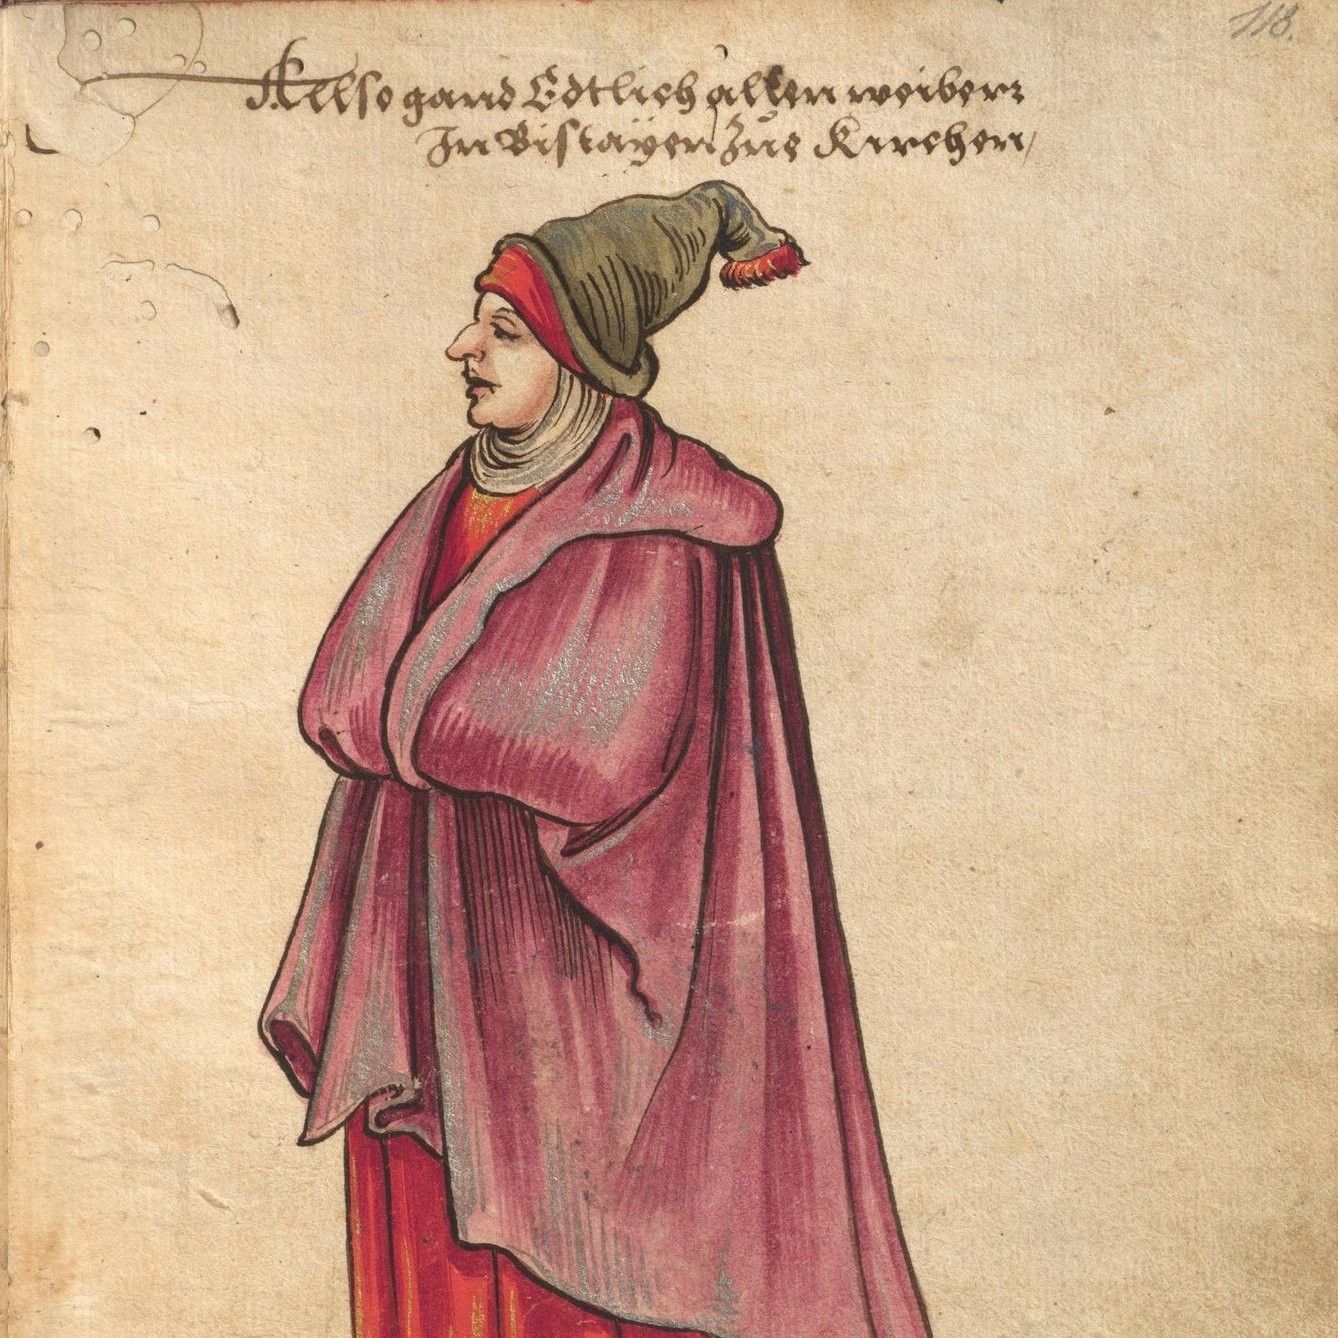 118.
Allso gand Edtlich allten weiber
In Biscayen Zue Kirchen